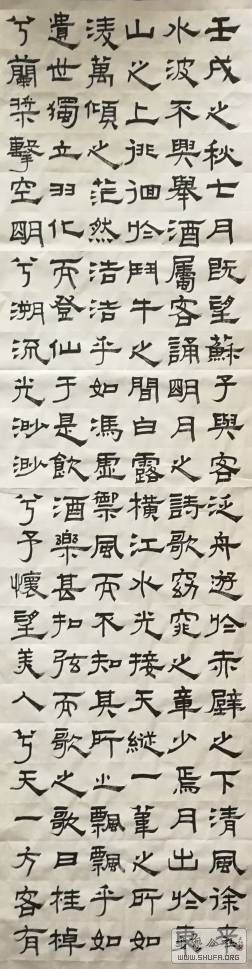 壬戌之秋七月既望蘇子與客泛舟遊於赤壁之下清風徐来
水波不興舉酒屬客誦明月之詩歌窈窕之章少焉月出於東
山之上徘徊於鬥牛之間白露橫江水光接天縱一葦之所如
淩萬頃之茫然浩浩乎如馮虛禦風而不知其所止飄飄乎如
遺世獨立羽化而登仙于是飲酒樂甚扣弦而歌之歌曰桂棹
兮蘭槳擊空明兮溯流光渺渺兮予懷望美人兮天一方客有
WWW.SHUFA.ORG